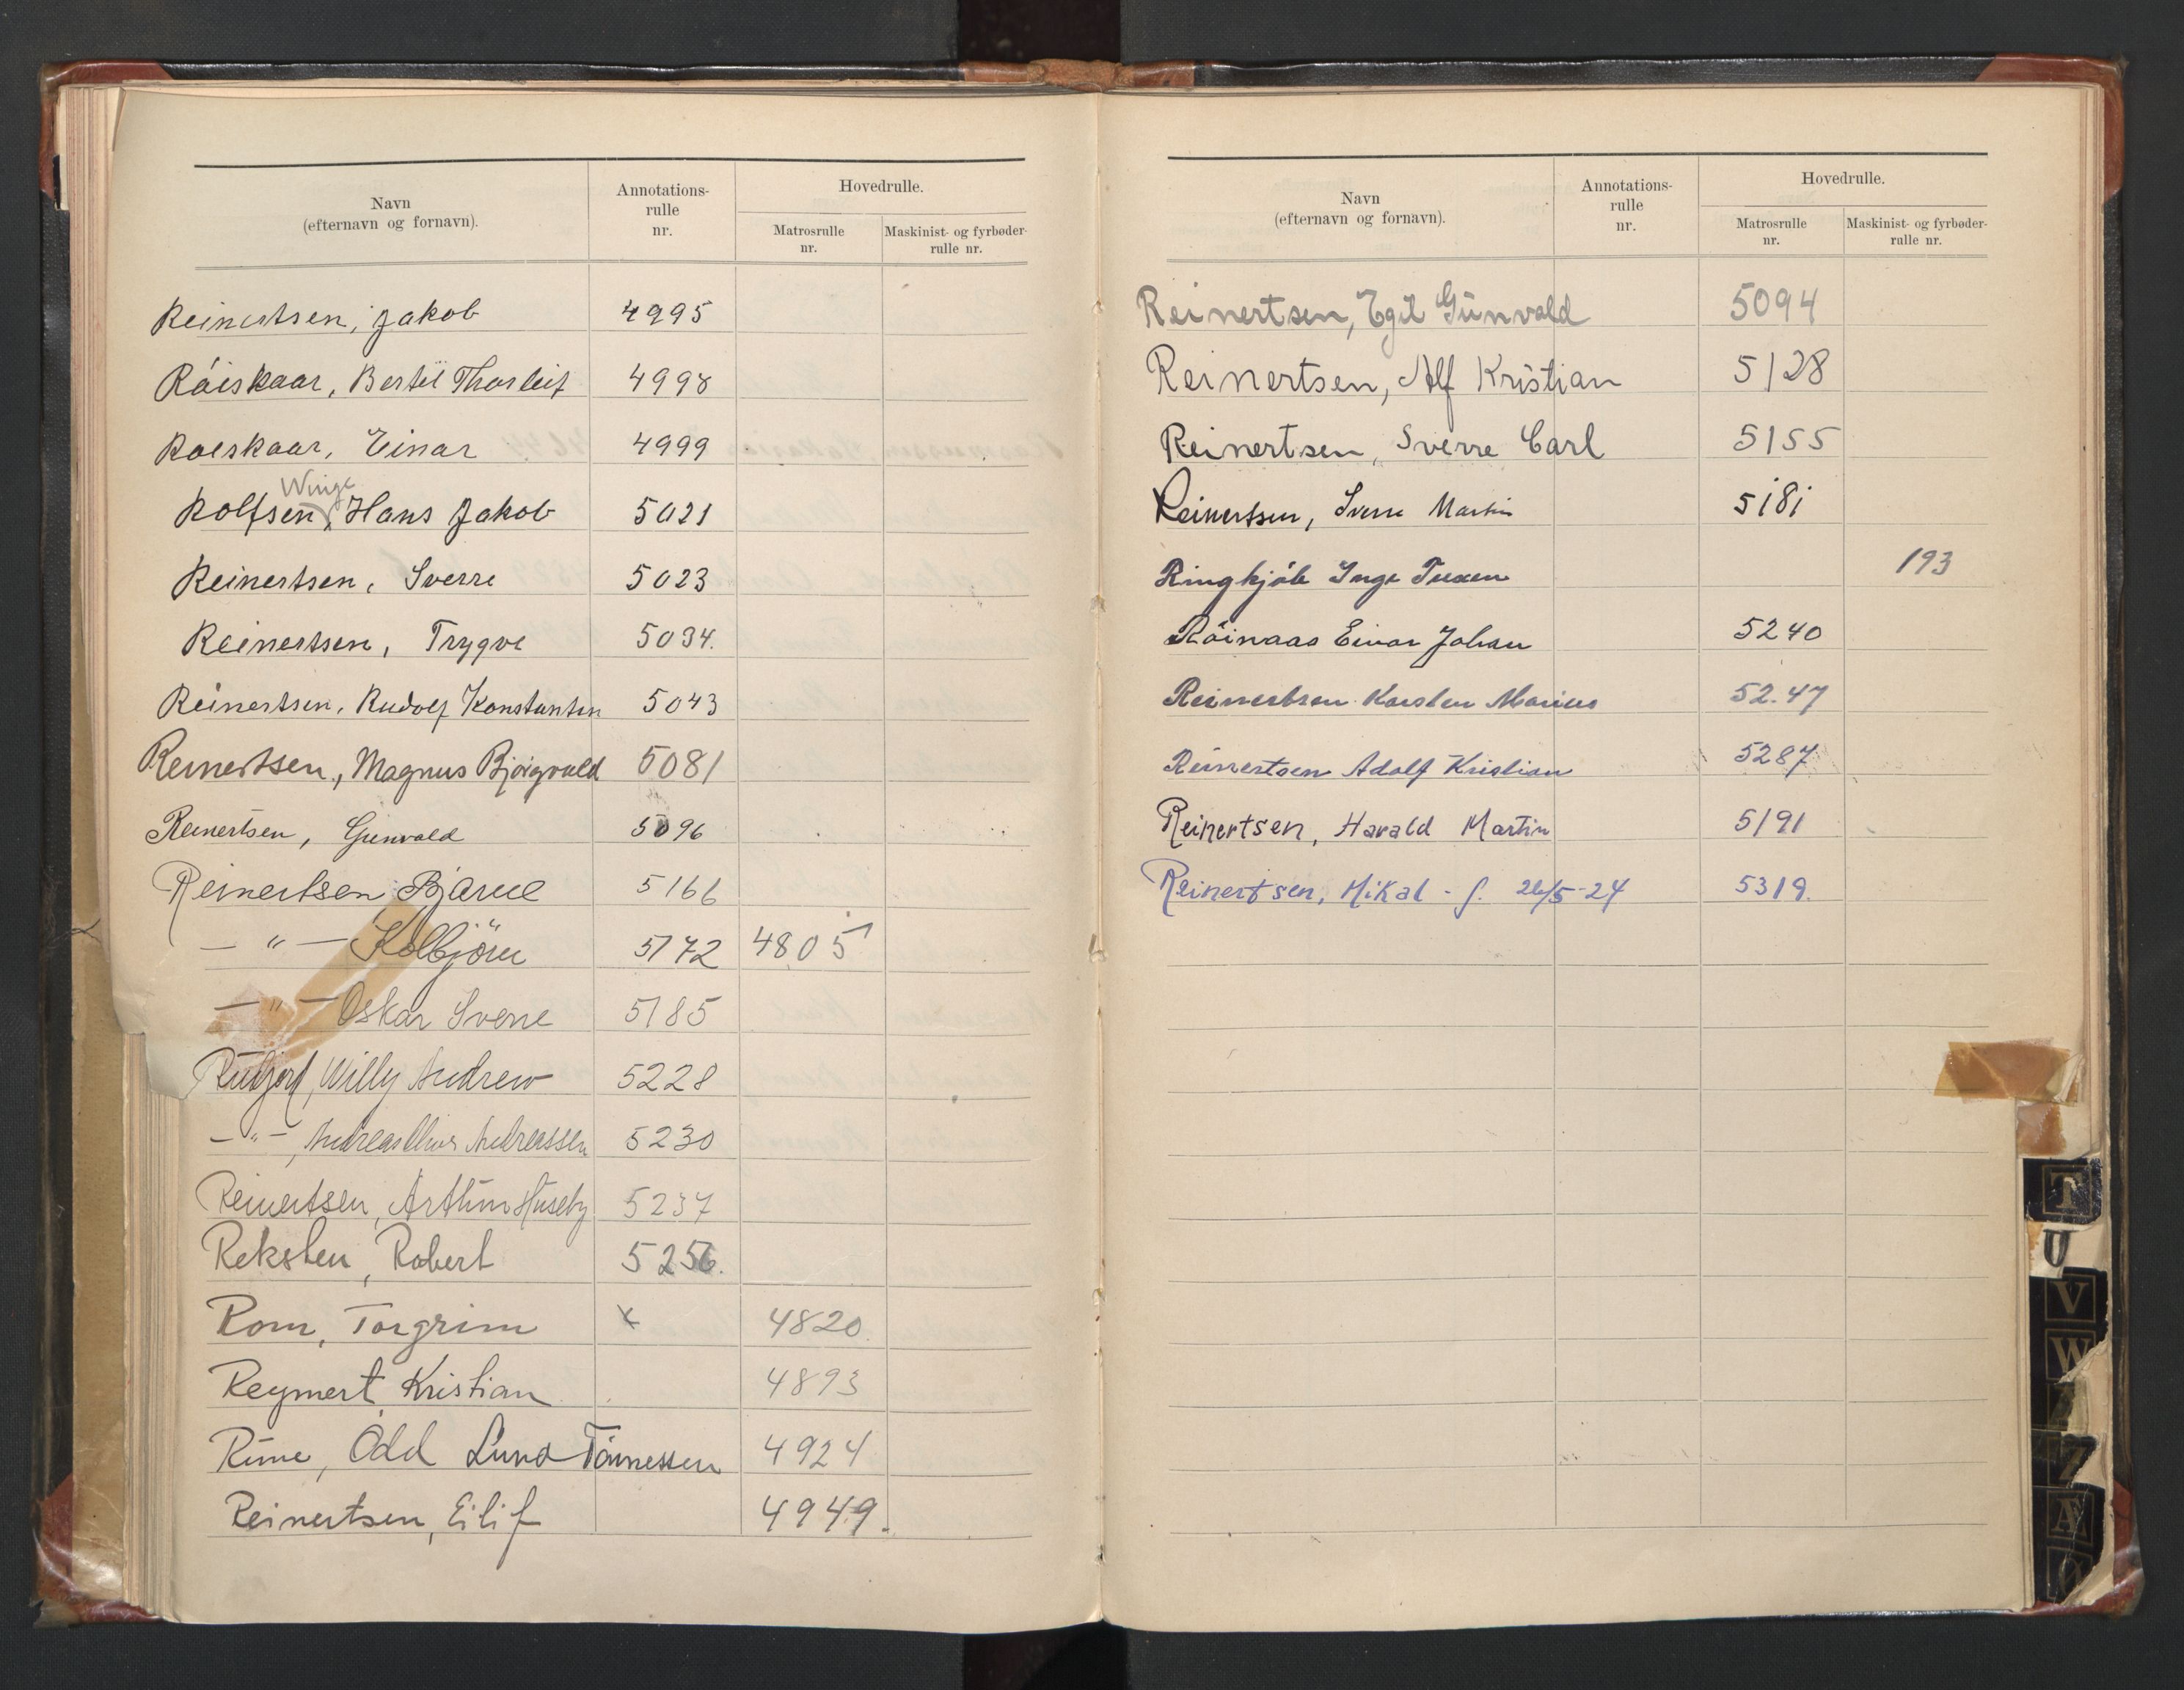 Navn
(efternavn og fornavn).
Annotations-
rulle
nr.
Hovedrulle.
Matrosrulle
nr.
Maskinist- og fyrbøder-
rulle nr.
Reinertsen, Jakob 4995
Röiskaar, Bertil Thorleif 4998
Roeskaar, Einar 4999
Winge
Rolfsen, Hans Jakob 5021
Reinertsen, Sverre 5023
Reinertsen, Trygve 5034.
Reinertsen, Rudolf Konstantin 5043
Reinertsen, Magnus Bjørgvald 5081
Reinertsen, Gunvald 5096
Reinertsen Bjarne 5166
— " — Kolbjörn 5172 4805
— " — Oskar Sverre 5185
Willy Andrew 5228
— " —, Andreas Andreassen 5230
Reinertsen, Arthur Huseby 5237
Reksten, Robert 5256.
Rom, Torgrim x 4820.
Reymert, Kristian 4893
Rime, Odd Lund Tönnessen 4924
Reinertsen, Eilif 4949.
Navn
(efternavn og fornavn).
Annotations-
rulle
nr.
Hovedrulle.
Matrosrulle
nr.
Maskinist- og fyrbøder-
rulle nr.
Reinertsen, Egil Gunvald 5094
Reinertsen, Alf Kristian 5128
Reinertsen, Sverre Carl 5155
Reinertsen, Sverre Martin 5181
Ringkjöb Inge Tuxen 193
Röinaas Einar Johan 5240
Reinertsen Karsten Marius 52.47
Reinertsen Adolf Kristian 5287
Reinertsen, Harald Martin 5191
Reinertsen, Mikal - f. 26/5-24 5319.
T
U
V
W
Z
Æ